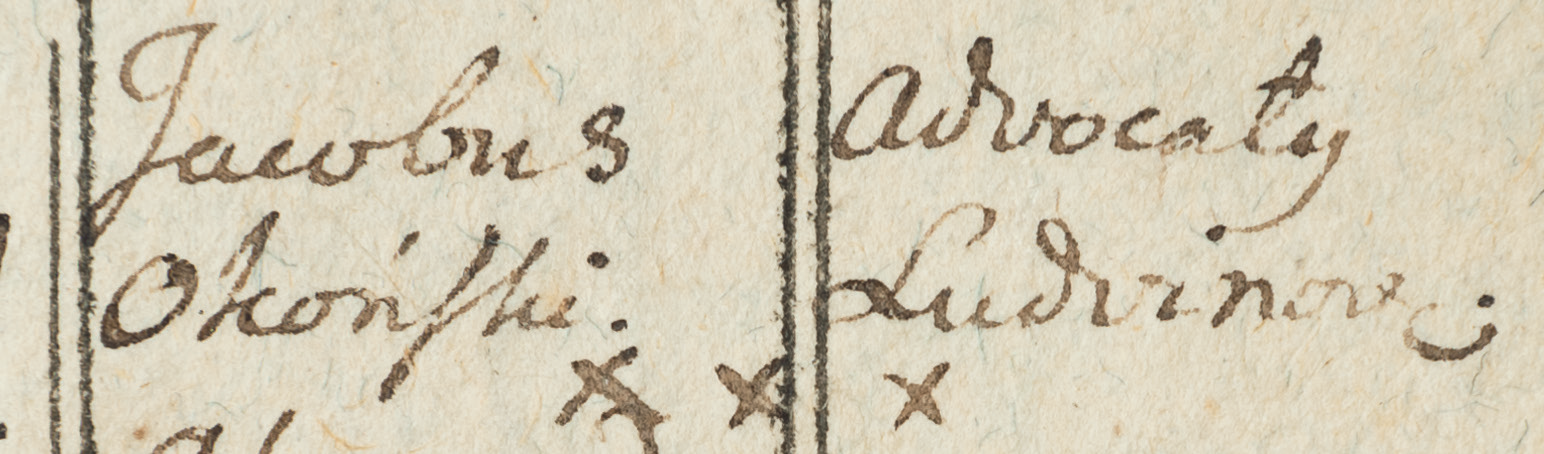 Jacobus
Okonſki.
Advocaty
Ludvinov.
x x x